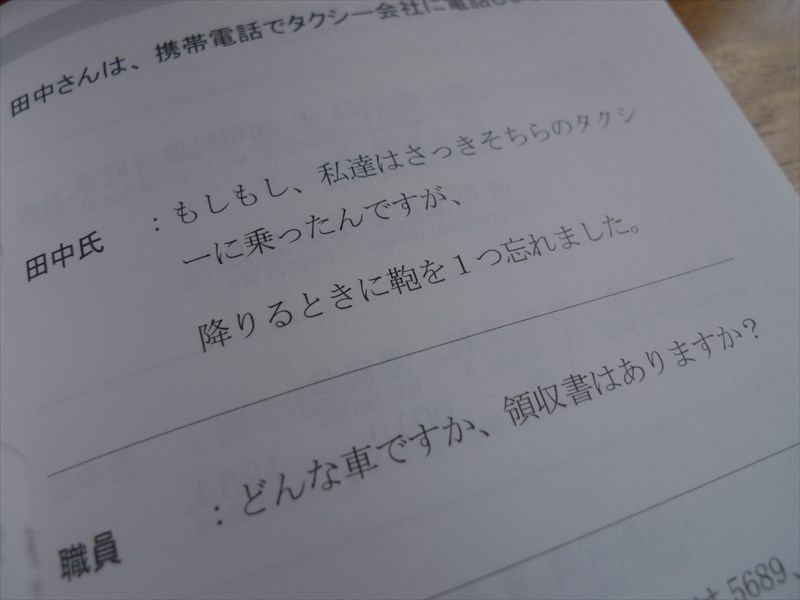 田中さんは、携帯電話でタクシー会社に電話しま
田中氏 : もしもし、私達はさっきそちらのタクシ
ーに乗ったんですが、
降りるときに鞄を1つ忘れました。
職員 : どんな車ですか、領収書はありますか?
は 5689、